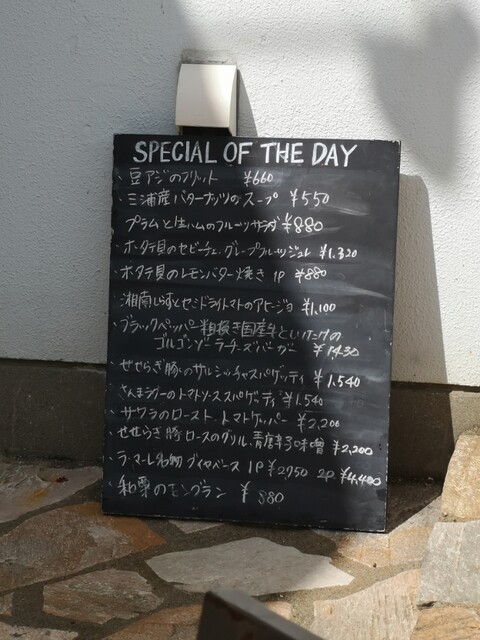 SPECIAL OF THE DAY
・豆アジのフリット ¥660
・三浦産バターナッツのスープ ¥550
・プラムと生ハムのフルーツサラダ ¥880
・ホタテ貝のセビーチェ、グレープフルーツジュレ ¥1.320
・ホタテ貝のレモンバター焼き 1P ¥880
・湘南しらすとセミドライトマトのアヒージョ ¥1,100
・ブラックペッパー粗挽き国産牛といちじくの
ゴルゴンゾーラチーズバーガー ¥1430
・せせらぎ豚のサルシッチャスパゲッティ ¥1.540
・さんまラグーのトマトソーススパゲッティ ¥1.540
・サワラのロースト、トマトケッパー ¥2,200
・せせらぎ豚ロースのグリル、青唐辛子味噌 ¥2,200
・ラ・マーレ名物ブイヤベース 1P ¥2750 2P ¥4,400
・和栗のモンブラン ¥880